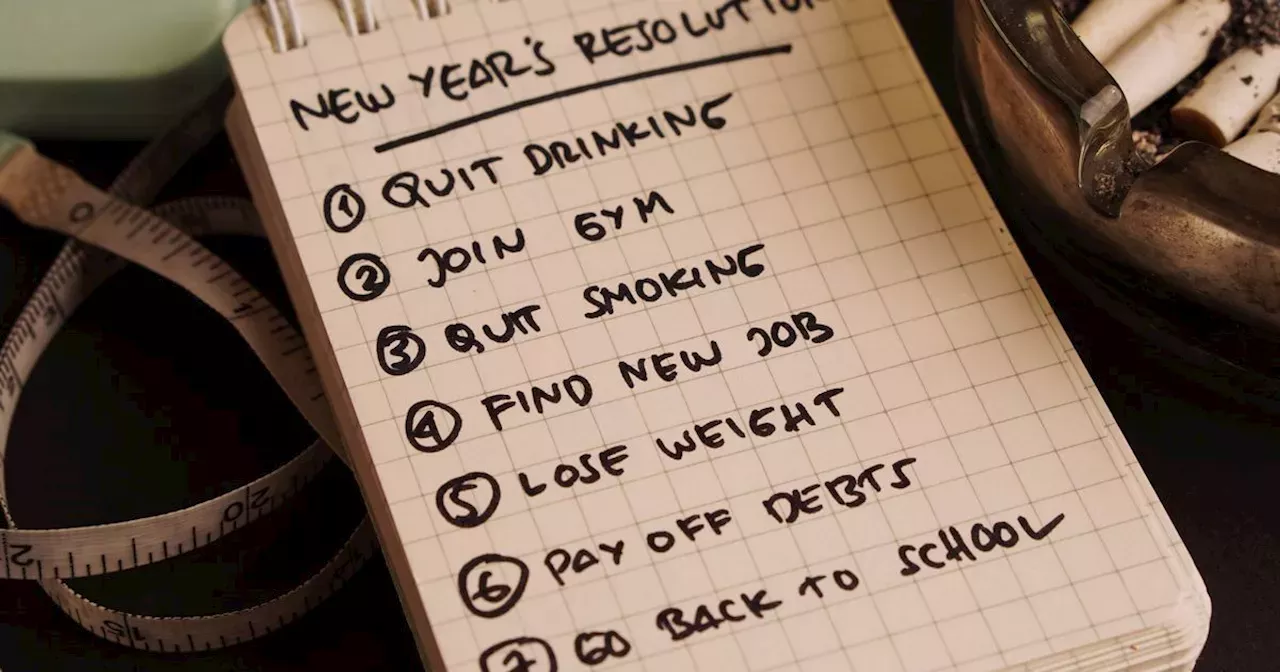 NEW YEAR'S RESOLUTION
① QUIT DRINKING
② JOIN GYM
③ QUIT SMOKING
④ FIND NEW JOB
⑤ LOSE WEIGHT
⑥ PAY OFF DEBTS
⑦ GO BACK TO SCHOOL
0
20
2
15